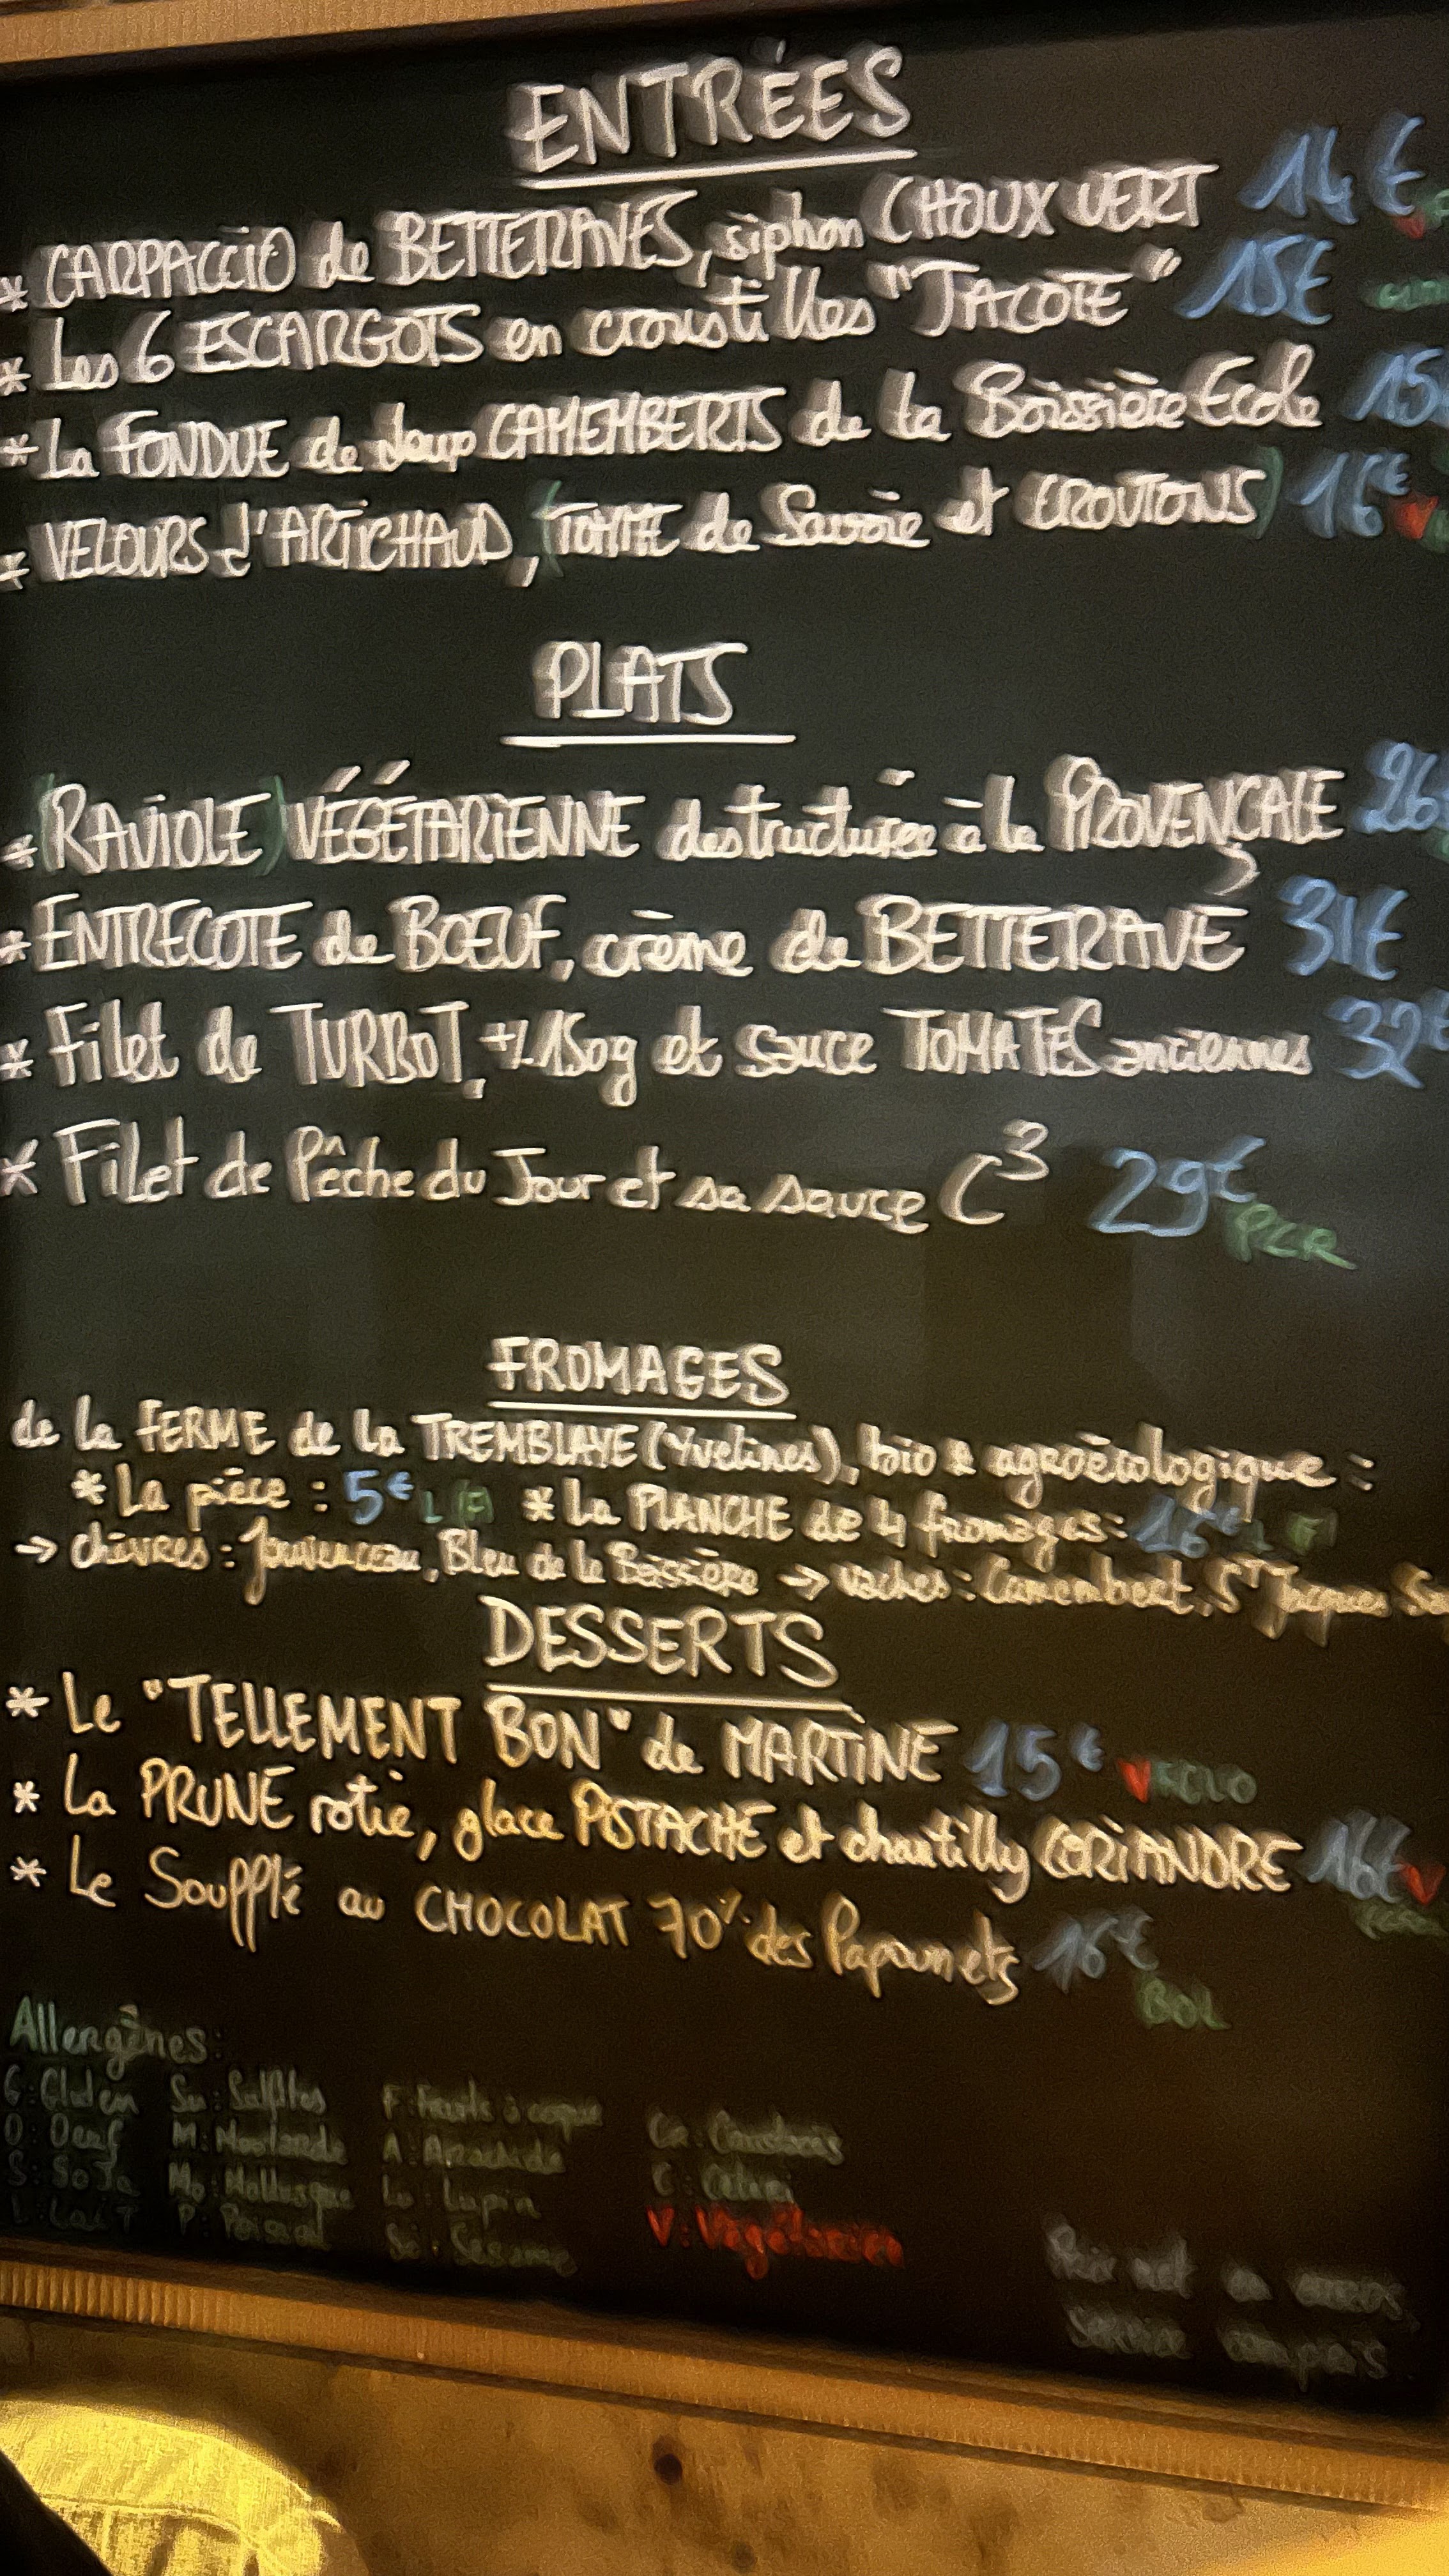 ENTRÉES
* CARPACCIO de BETTERAVES, siphon CHOUX VERT 14€
* Les 6 ESCARGOTS en croustilles "JACOTE" 15€
* La FONDUE de deux CAMEMBERTS de la Boissière Ecole 15
* VELOURS d'ARTICHAUD, (TOMME de Savoie et CROUTONS) 16€ V
PLATS
* (RAVIOLE) VÉGÉTARIENNE destructurée à la PROVENÇALE 26
* ENTRECOTE de BŒUF, crème de BETTERAVE 31€
* Filet de TURBOT, +/- 150g et sauce TOMATES anciennes 32€
* Filet de Pêche du Jour et sa sauce C³ 29€
PCR
FROMAGES
de la FERME de la TREMBLAYE (Yvelines), bio & agroécologique :
* La pièce : 5€ L (F) * La PLANCHE de 4 fromages : 16€ L F
→ chèvres : Jouvenceau, Bleu de la Boissière → vaches : Camembert, St Jacques
DESSERTS
* Le "TELLEMENT BON" de MARTINE 15€ V
* La PRUNE rotie, glace PISTACHE et chantilly CORIANDRE 16€ V
* Le Soufflé au CHOCOLAT 70% des Papounets 16€
GOL
Allergènes :
G : Gluten Su : Sulfites F : Fruits à coque
O : Oeuf M : Moutarde A : Arachide
S : Soja Mo : Mollusque Lu : Lupin C : Céleri
L : Lait P : Poisson Se : Sésame V : Végétarien
Prix net en euros
service compris